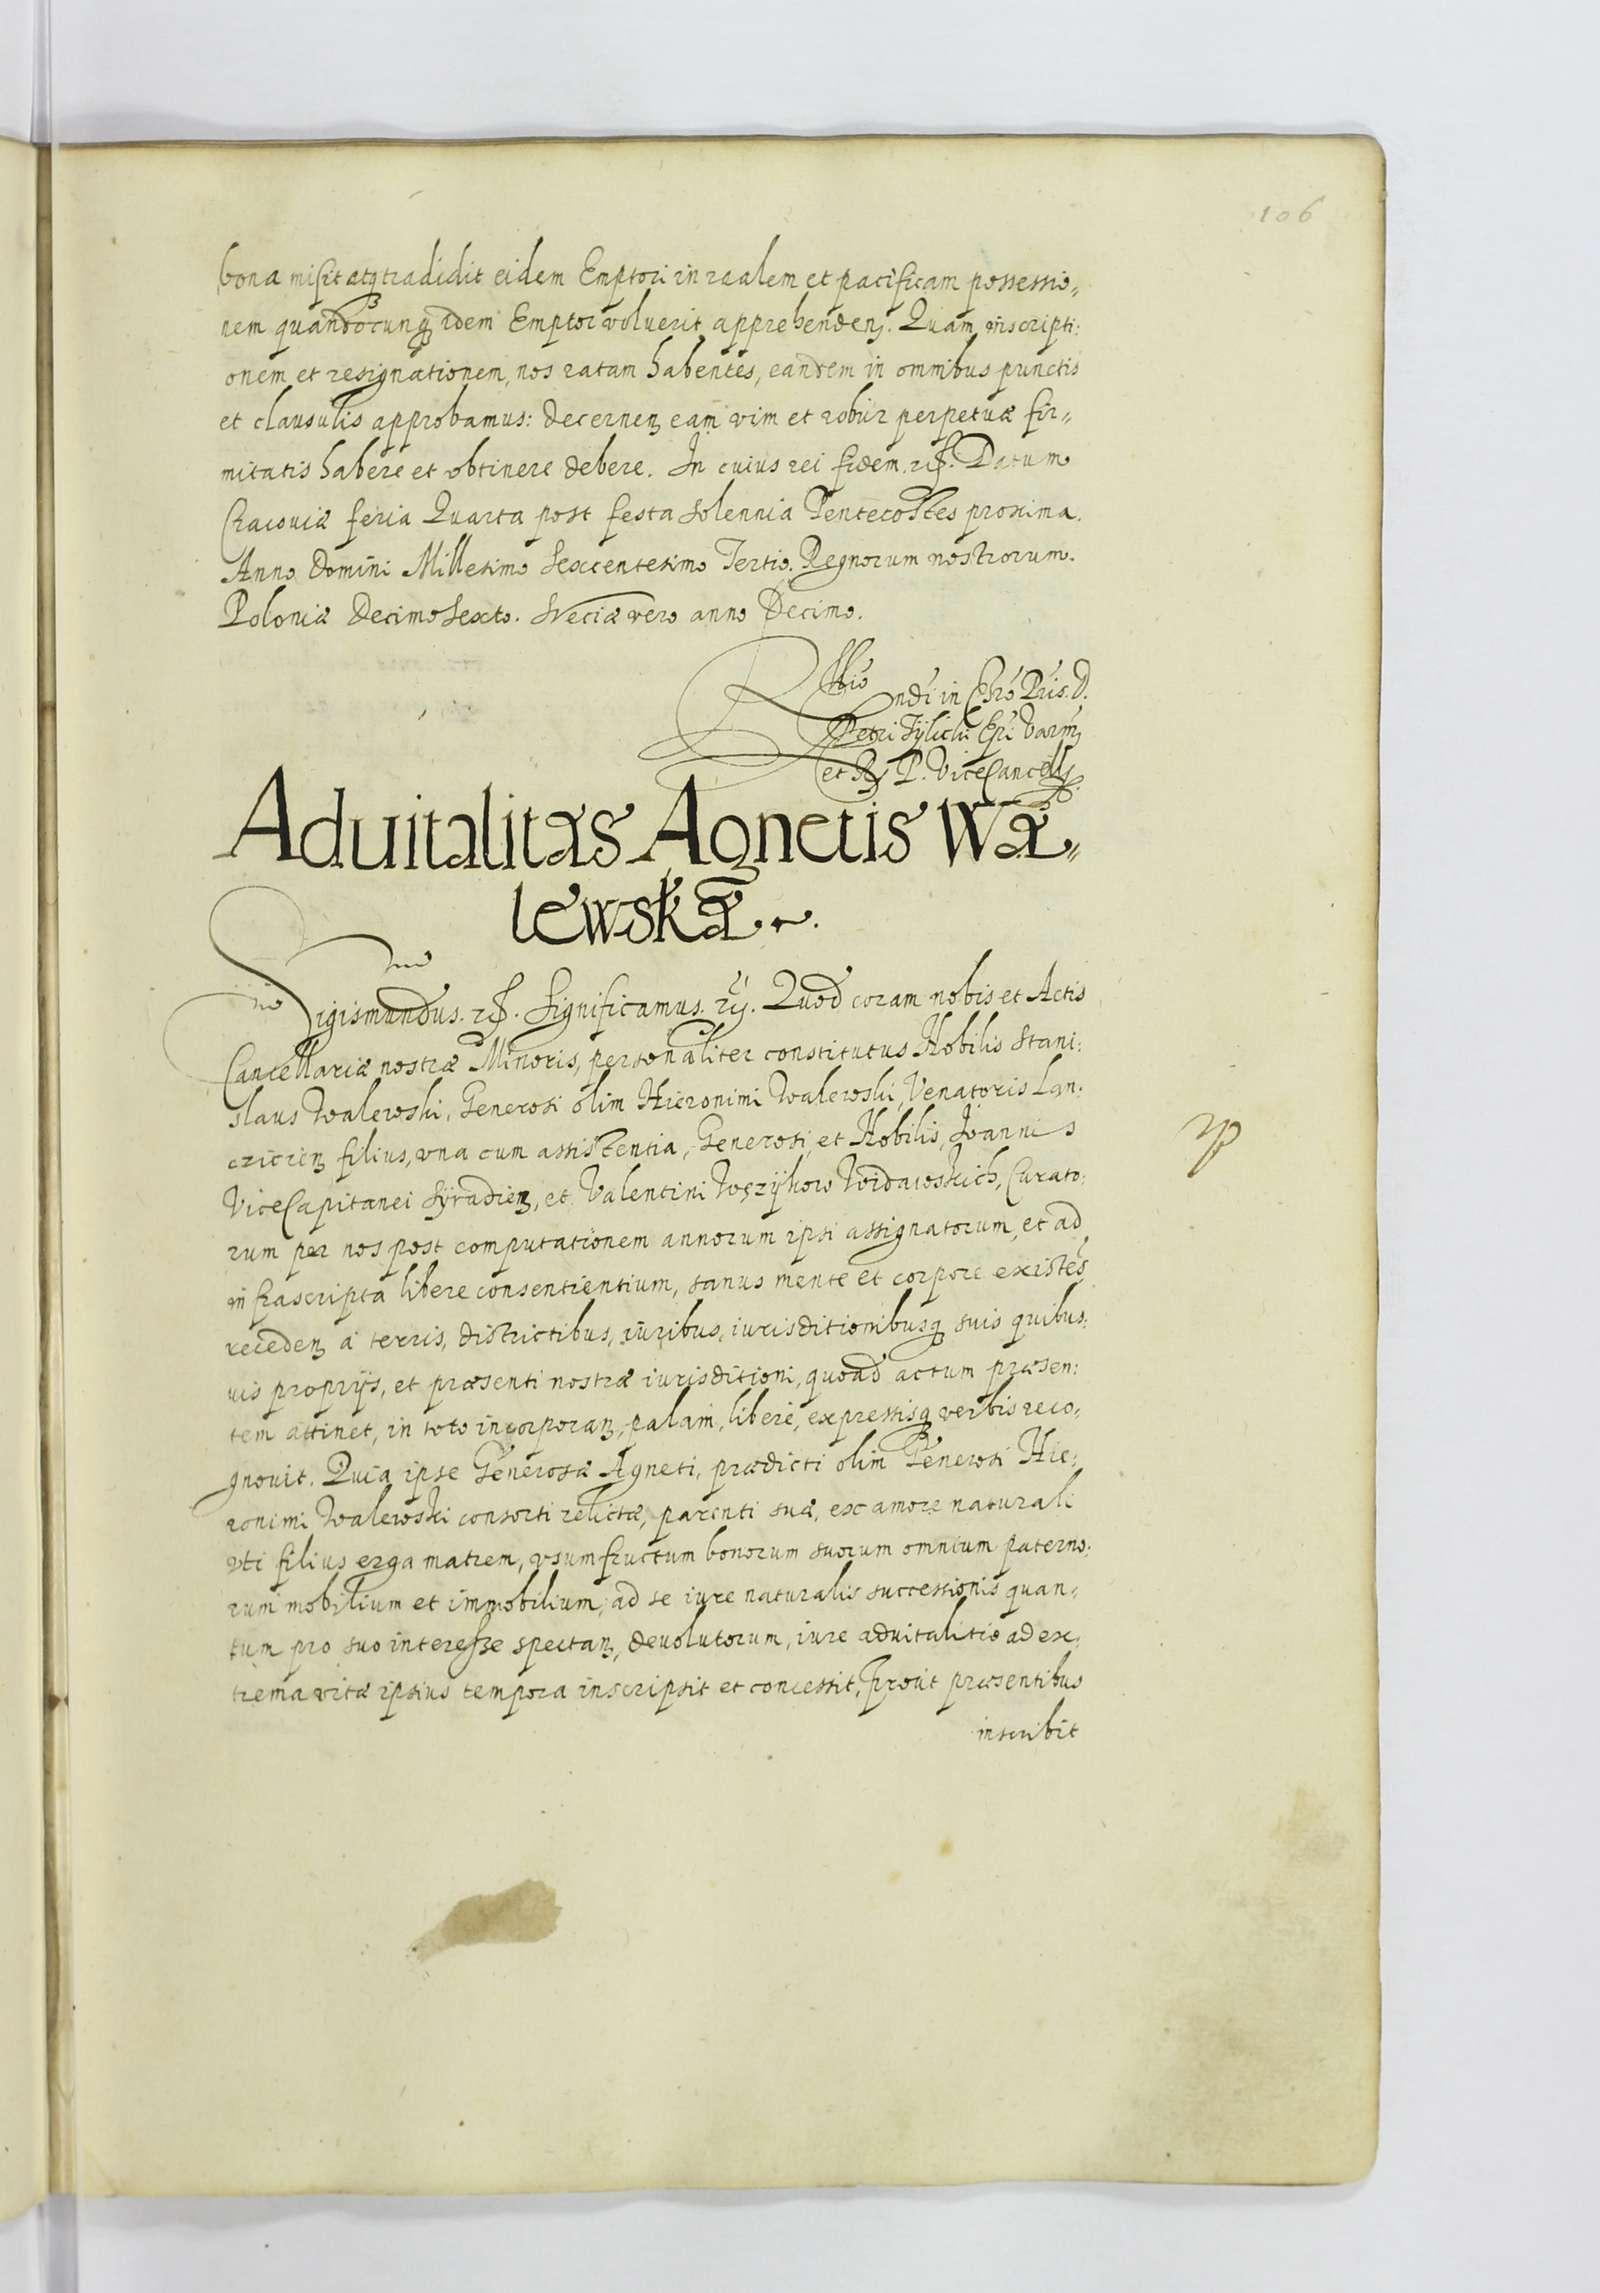 106
bona misit atq; tradidit eidem Emptori in realem et pacificam possessio„
nem quandocunq; idem Emptor voluerit apprehenden. Quam inscripti:
onem et resignationem, nos ratam habentes, eandem in omnibus punctis
et clausulis approbamus: decernen eam vim et robur perpetuæ fir„
mitatis habere et obtinere debere. In cuius rei fidem. rc. Datum
Cracouiæ feria Quarta post festa solennia Pentecostes proxima.
Anno Domini Millesimo Sexcentesimo Tertio. Regnorum nostrorum.
Poloniæ Decimosexto. Sveciæ vero anno Decimo.
Rndi in Chro Pris. D.
Petri Tÿlicki Epi Varm
et R. P. ViceCancell
Aduitalitas Agnetis Wa„
lewska.
Sigismundus. rc. Significamus. rc. Quod coram nobis et Actis
Cancellariæ nostræ Minoris, personaliter constitutus Nobilis Stani:
slaus Walewski, Generosi olim Hieronimi Walewski, Venatoris Lan:
cicien filius, vna cum assistentia, Generosi, et Nobilis, Joannis
ViceCapitanei Sÿradien, et Valentini Wężÿkow Widawskich, Curato:
rum per nos post computationem annorum ipsi assignatorum, et ad
infrascripta libere consentientium, sanus mente et corpore existes
receden a terris, districtibus, iuribus, iurisditionibusq; suis quibus:
uis proprijs, et præsenti nostræ iurisditioni, quoad actum præsen:
tem attinet, in toto incorporan, palam, libere, expressisq; verbis reco:
gnouit. Quia ipse Generosæ Agneti, prædicti olim Generosi Hie:
ronimi Walewski consorti relictæ, parenti suæ, ex amore naturali
vti filius erga matrem, vsumfructum bonorum suorum omnium paterno:
rum mobilium et immobilium, ad se iure naturalis successionis quan:
tum pro suo interesse spectan, deuolutorum, iure aduitalitio ad ex:
trema vitæ ipsius tempora inscripsit et concessit, prout præsentibus
inscribit